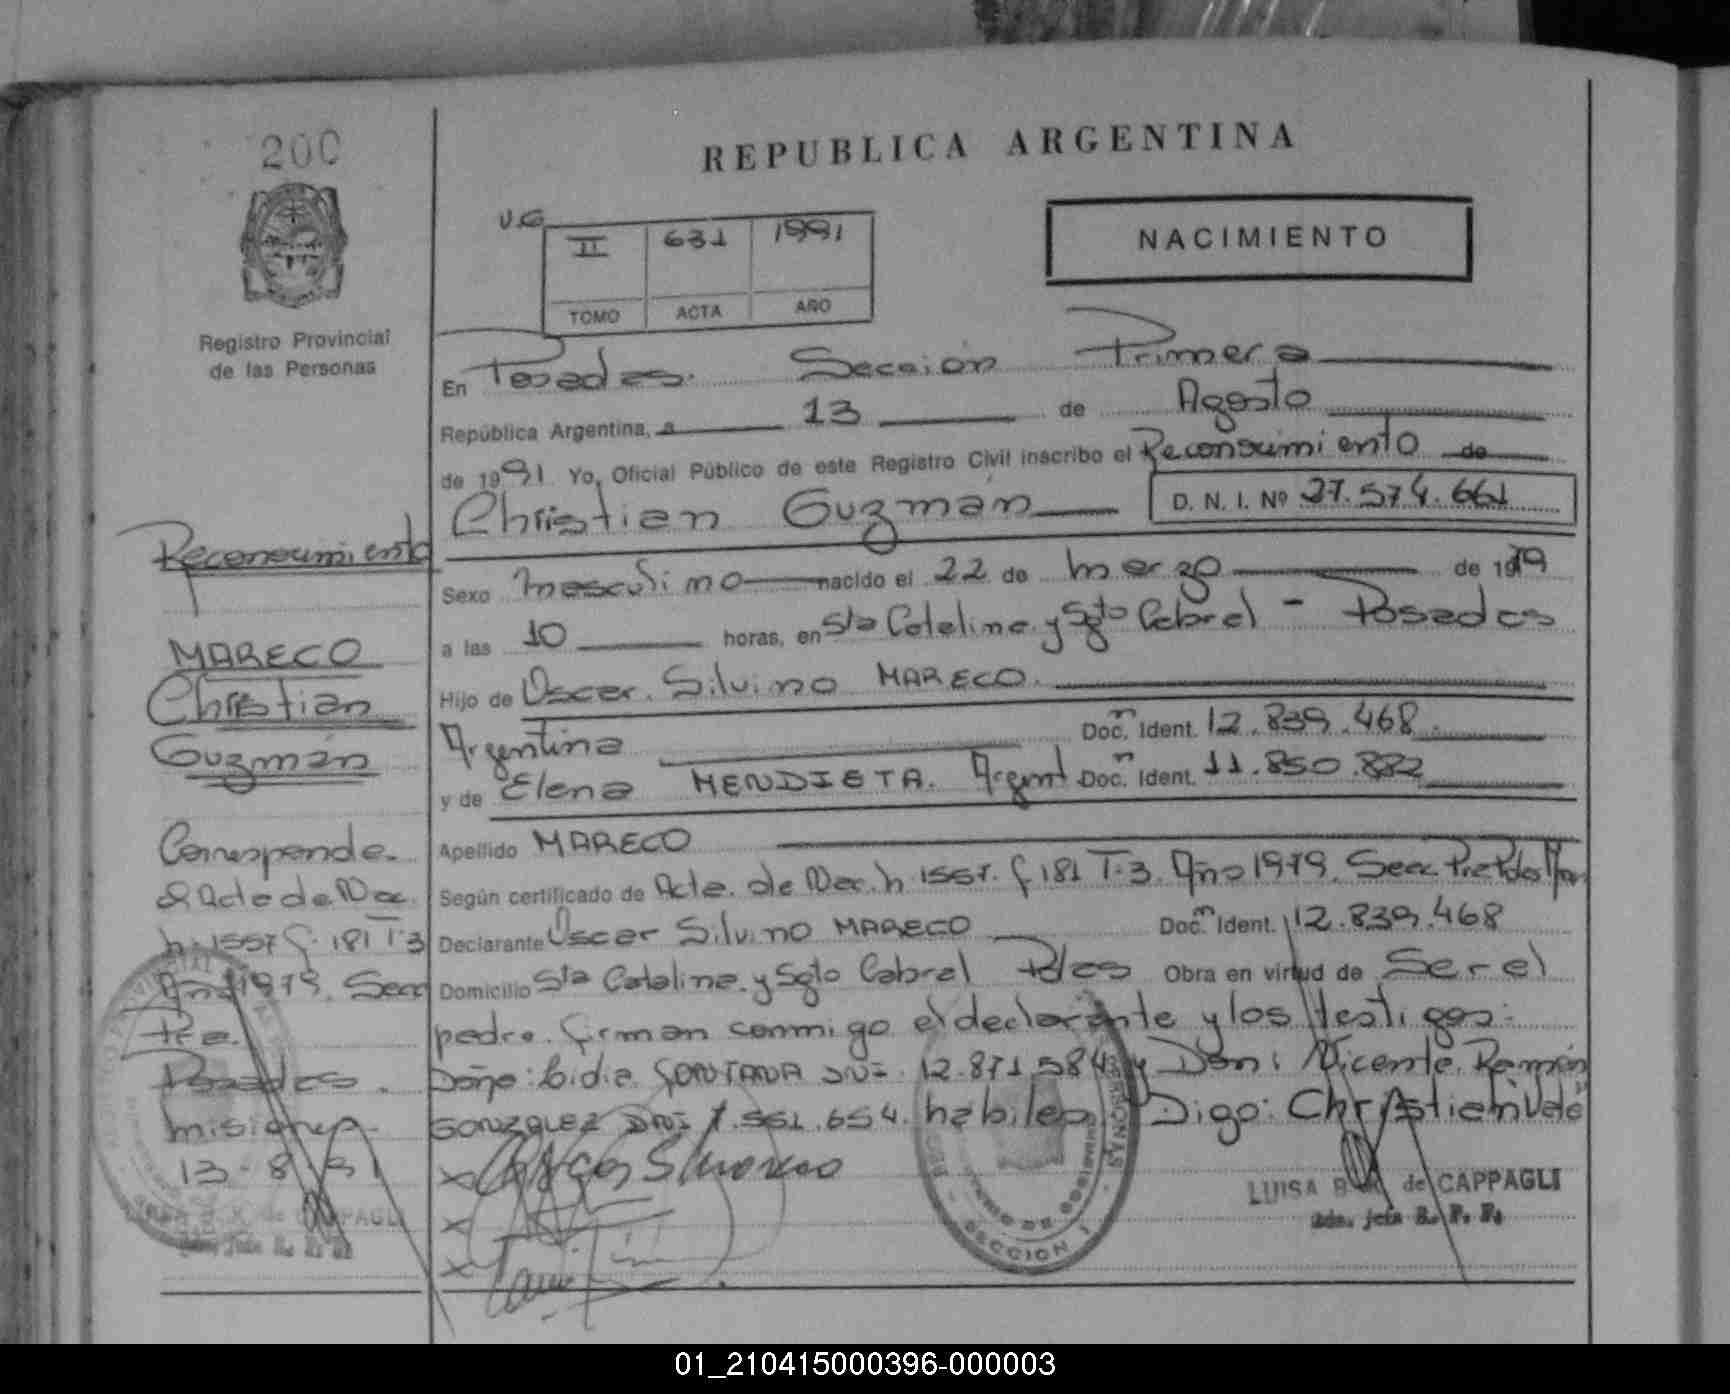 200
REPUBLICA ARGENTINA
V.G.
II 631 1991
TOMO ACTA AÑO
NACIMIENTO
Registro Provincial
de las Personas
En Posadas. Sección Primera
República Argentina, a 13 de Agosto
de 1991 Yo, Oficial Público de este Registro Civil inscribo el Reconosimiento de
Christian Guzmán D. N. I. Nº 27.574.661
Sexo masculino nacido el 22 de marzo de 1979
a las 10 horas, en Sta Catalina y Sgto Cabral - Posadas
Hijo de Oscar Silvino MARECO.
Argentina Docm. Ident. 12.839.468.
y de Elena MENDIETA. Argent Docm. Ident. 11.850.882
Apellido MARECO
Según certificado de Acta de Nac. h 1557. f 181 T.3. Año 1979. Secc Pra Pdas
Declarante Oscar Silvino MARECO Docm. Ident. 12.839.468
Domicilio Sta Catalina y Sgto Cabral Pdas Obra en virtud de Ser el
padre. firman conmigo el declarante y los testigos:
Doña: Lidia SANTANA DNI. 12.871.584 y Don: Vicente Ramón
GONZALEZ DNI 7.551.654. habiles Digo: Christian Vale
LUISA B de CAPPAGLI
2da. jefa R. P. P.
SECCION 1
Reconosimiento
MARECO
Christian
Guzmán
Corresponde
al Acta de Nac.
h. 1557 f. 181 T 3
Año 1979. Secc
Pra.
Posadas.
misiones
13-8-91
01_210415000396-000003